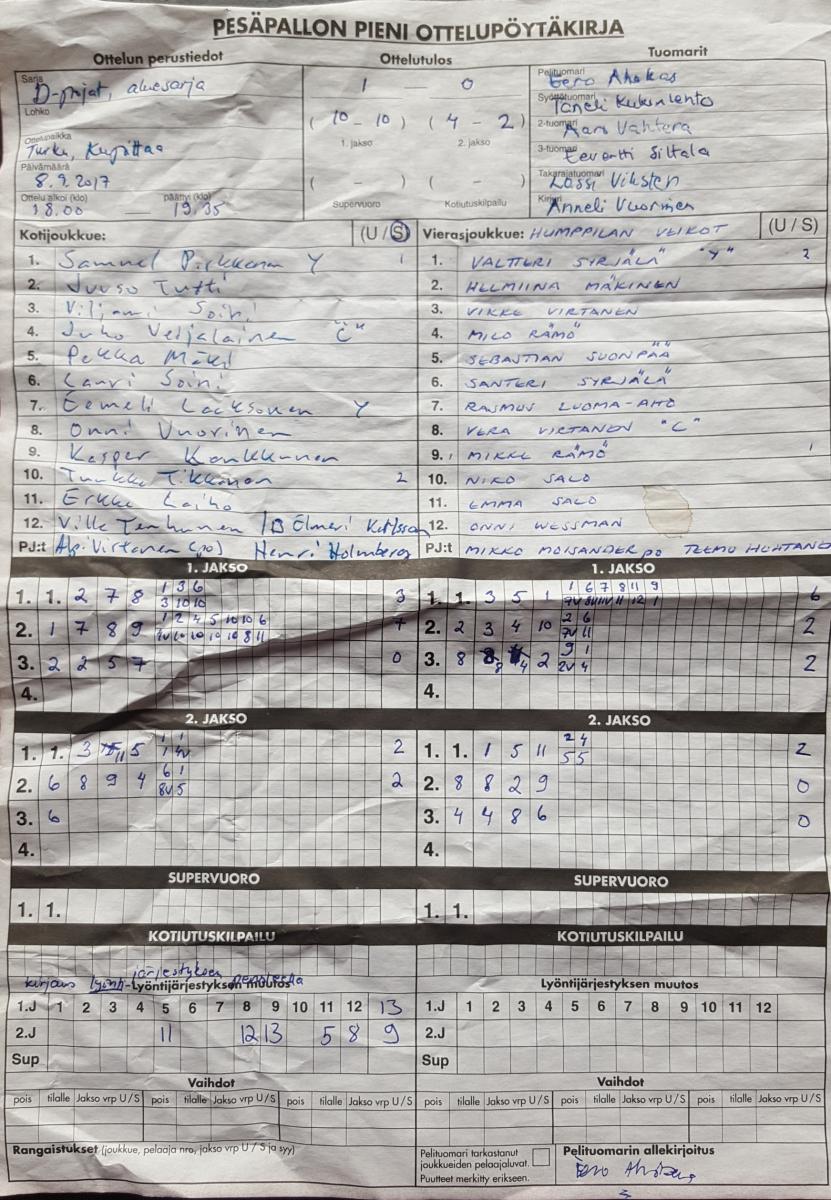 PESÄPALLON PIENI OTTELUPÖYTÄKIRJA
Ottelun perustiedot Ottelutulos Tuomarit
Sarja D-pojat, aluesarja 1 0 Pelituomari Eero Ahokas
Lohko Syöttötuomari Taneli
( 10 - 10 ) ( 4 - 2 ) 2-tuomari Vahtera
Ottelupaikka Turku, Kupittaa 1. jakso 2. jakso 3-tuomari Eevertti Siltala
Päivämäärä 8.9.2017 Takarajatuomari Lassi Viksten
Ottelu alkoi (klo) päättyi (klo) ( - ) ( - )
18.00 19.35 Supervuoro Kotiutuskilpailu Kirjuri Anneli Vuorinen
Kotijoukkue: (U / S) Vierasjoukkue: HUMPPILAN VEIKOT (U / S)
1. Samuel Pirkkonen Y 1 1. VALTTERI SYRJÄLÄ "Y" 2
2. Juuso Tutti 2. HELMIINA MÄKINEN
3. Viljami Soini 3. VIKKE VIRTANEN
4. Juho Veijalainen C 4. MILO RÄMÖ
5. Pekka Mäki 5. SEBASTIAN SUONPÄÄ
6. Lauri Soini 6. SANTERI SYRJÄLÄ
7. Eemeli Laaksonen Y 7. RASMUS LUOMA-AHO
8. Onni Vuorinen 8. VERA VIRTANEN "C"
9. Kasper Konkkunen 9. MIKKE RÄMÖ 1
10. Tuukka Tikkanen 2 10. NIKO SALO
11. Erkka Laiho 11. EMMA SALO
12. Ville Tenhunen /13 Elmeri Karlsson 12. ONNI WESSMAN
PJ:t Virtanen (po) Henri Holmberg PJ:t MIKKO MOISANDER po TEEMU HUHTANO
1. JAKSO 1. JAKSO
1 3 6 1 6 7 8 11 9
1. 1. 2 7 8 3 10 10 3 1. 1. 3 5 1 11 12 1 6
1 2 4 5 10 10 6 2 6
2. 1 7 8 9 10 10 10 10 8 11 7 2. 2 3 4 10 7V 11 2
9 1
3. 2 2 5 7 0 3. 8 8 4 2 2V 4 2
4. 4.
2. JAKSO 2. JAKSO
1 1 2 4
1. 1. 3 11 5 1 4V 2 1. 1. 1 5 11 5 5 2
6 1
2. 6 8 9 4 8V 5 2 2. 8 8 2 9 0
3. 6 3. 4 4 8 6 0
4. 4.
SUPERVUORO SUPERVUORO
1. 1. 1. 1.
KOTIUTUSKILPAILU KOTIUTUSKILPAILU
järjestyksen
kirjaus lyönti- perusteella
Lyöntijärjestyksen muutos Lyöntijärjestyksen muutos
1.J 1 2 3 4 5 6 7 8 9 10 11 12 13 1.J 1 2 3 4 5 6 7 8 9 10 11 12
2.J 11 12 13 5 8 9 2.J
Sup Sup
Vaihdot Vaihdot
pois tilalle Jakso vrp U/S pois tilalle Jakso vrp U/S pois tilalle Jakso vrp U/S pois tilalle Jakso vrp U/S pois tilalle Jakso vrp U/S pois tilalle Jakso vrp U/S
Rangaistukset (joukkue, pelaaja nro, jakso vrp U / S ja syy) Pelituomari tarkastanut joukkueiden pelaajaluvat. Pelituomarin allekirjoitus
Puutteet merkitty erikseen. Eero Ahokas